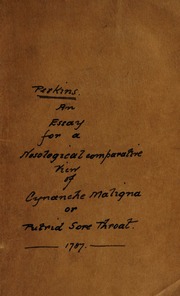 Perkins.
An
Essay
for a
Nosological comparative
View
of
Cynanche Maligna
or
Putrid Sore Throat.
1787.